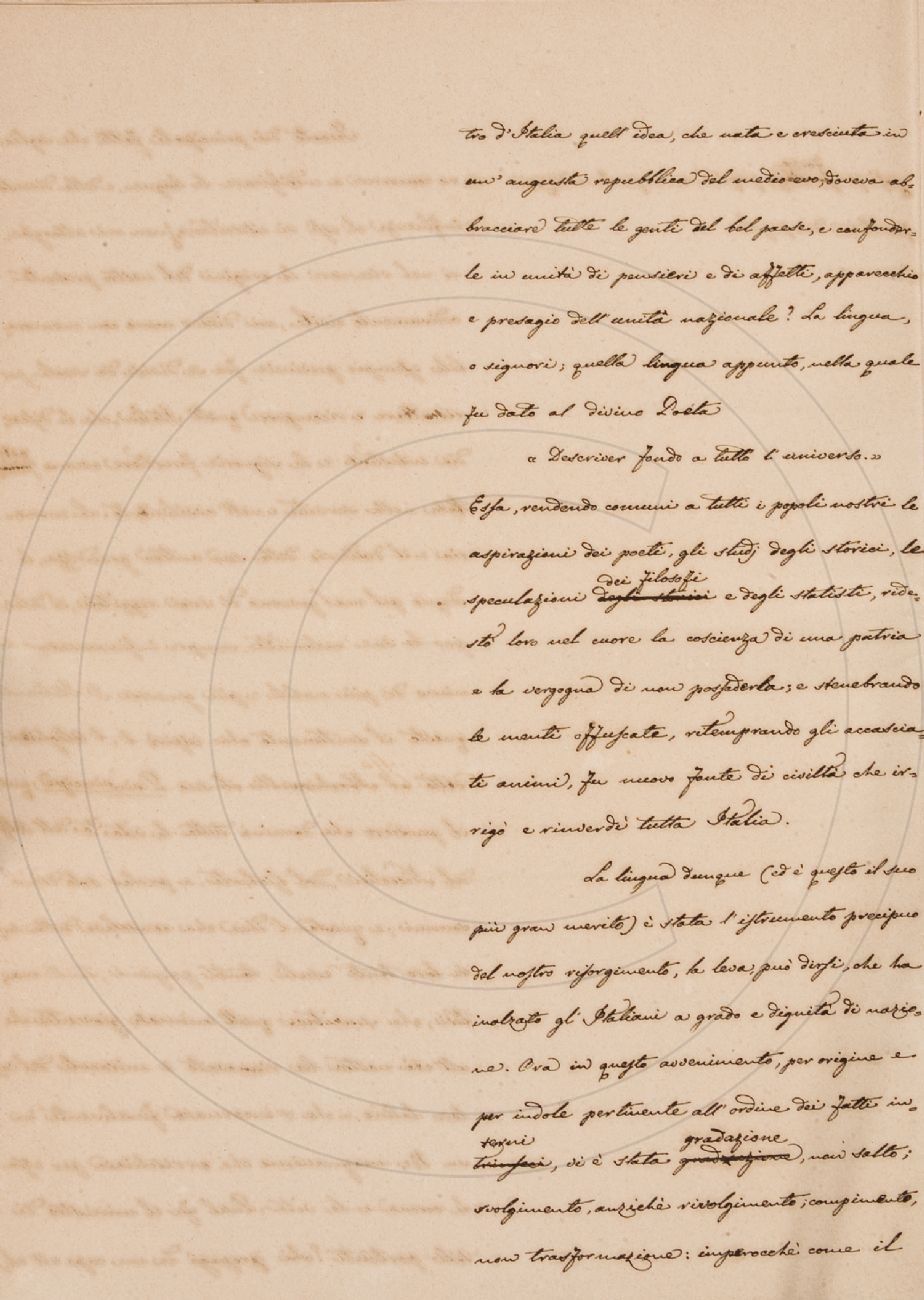 tro d'Italia quell'idea, che nata e cresciuta in
un'augusta repubblica del medio evo, doveva ab=
bracciare tutte le genti del bel paese, e confonder=
le in unità di pensieri e di affetti, apparecchio
e presagio dell'unità nazionale? La lingua,
o signori; quella lingua appunto, nella quale
fu dato al divino Poeta
« Descriver fondo a tutto l'universo.»
Essa, rendendo comuni a tutti i popoli nostri le
aspirazioni dei poeti, gli studj degli storici, le
dei filosofi
speculazioni degli storici e degli statisti, ride=
stò loro nel cuore la coscienza di una patria
e la vergogna di non possederla; e stenebrando
le menti offuscate, ritemprando gli accascia=
ti animi, fu nuovo fonte di civiltà che ir=
rigò e rinverdì tutta Italia.
La lingua dunque (ed è questo il suo
più gran merito) è stata l'istrumento precipuo
del nostro risorgimento, la leva, può dirsi, che ha
inalzato gl'Italiani a grado e dignità di nazio=
ne. Ora in questo avvenimento, per origine e
per indole pertinente all'ordine dei fatti in=
terni gradazione
trinseci, vi è stata , non salto;
svolgimento, anzichè rivolgimento; compimento,
non trasformazione: imperocchè come il